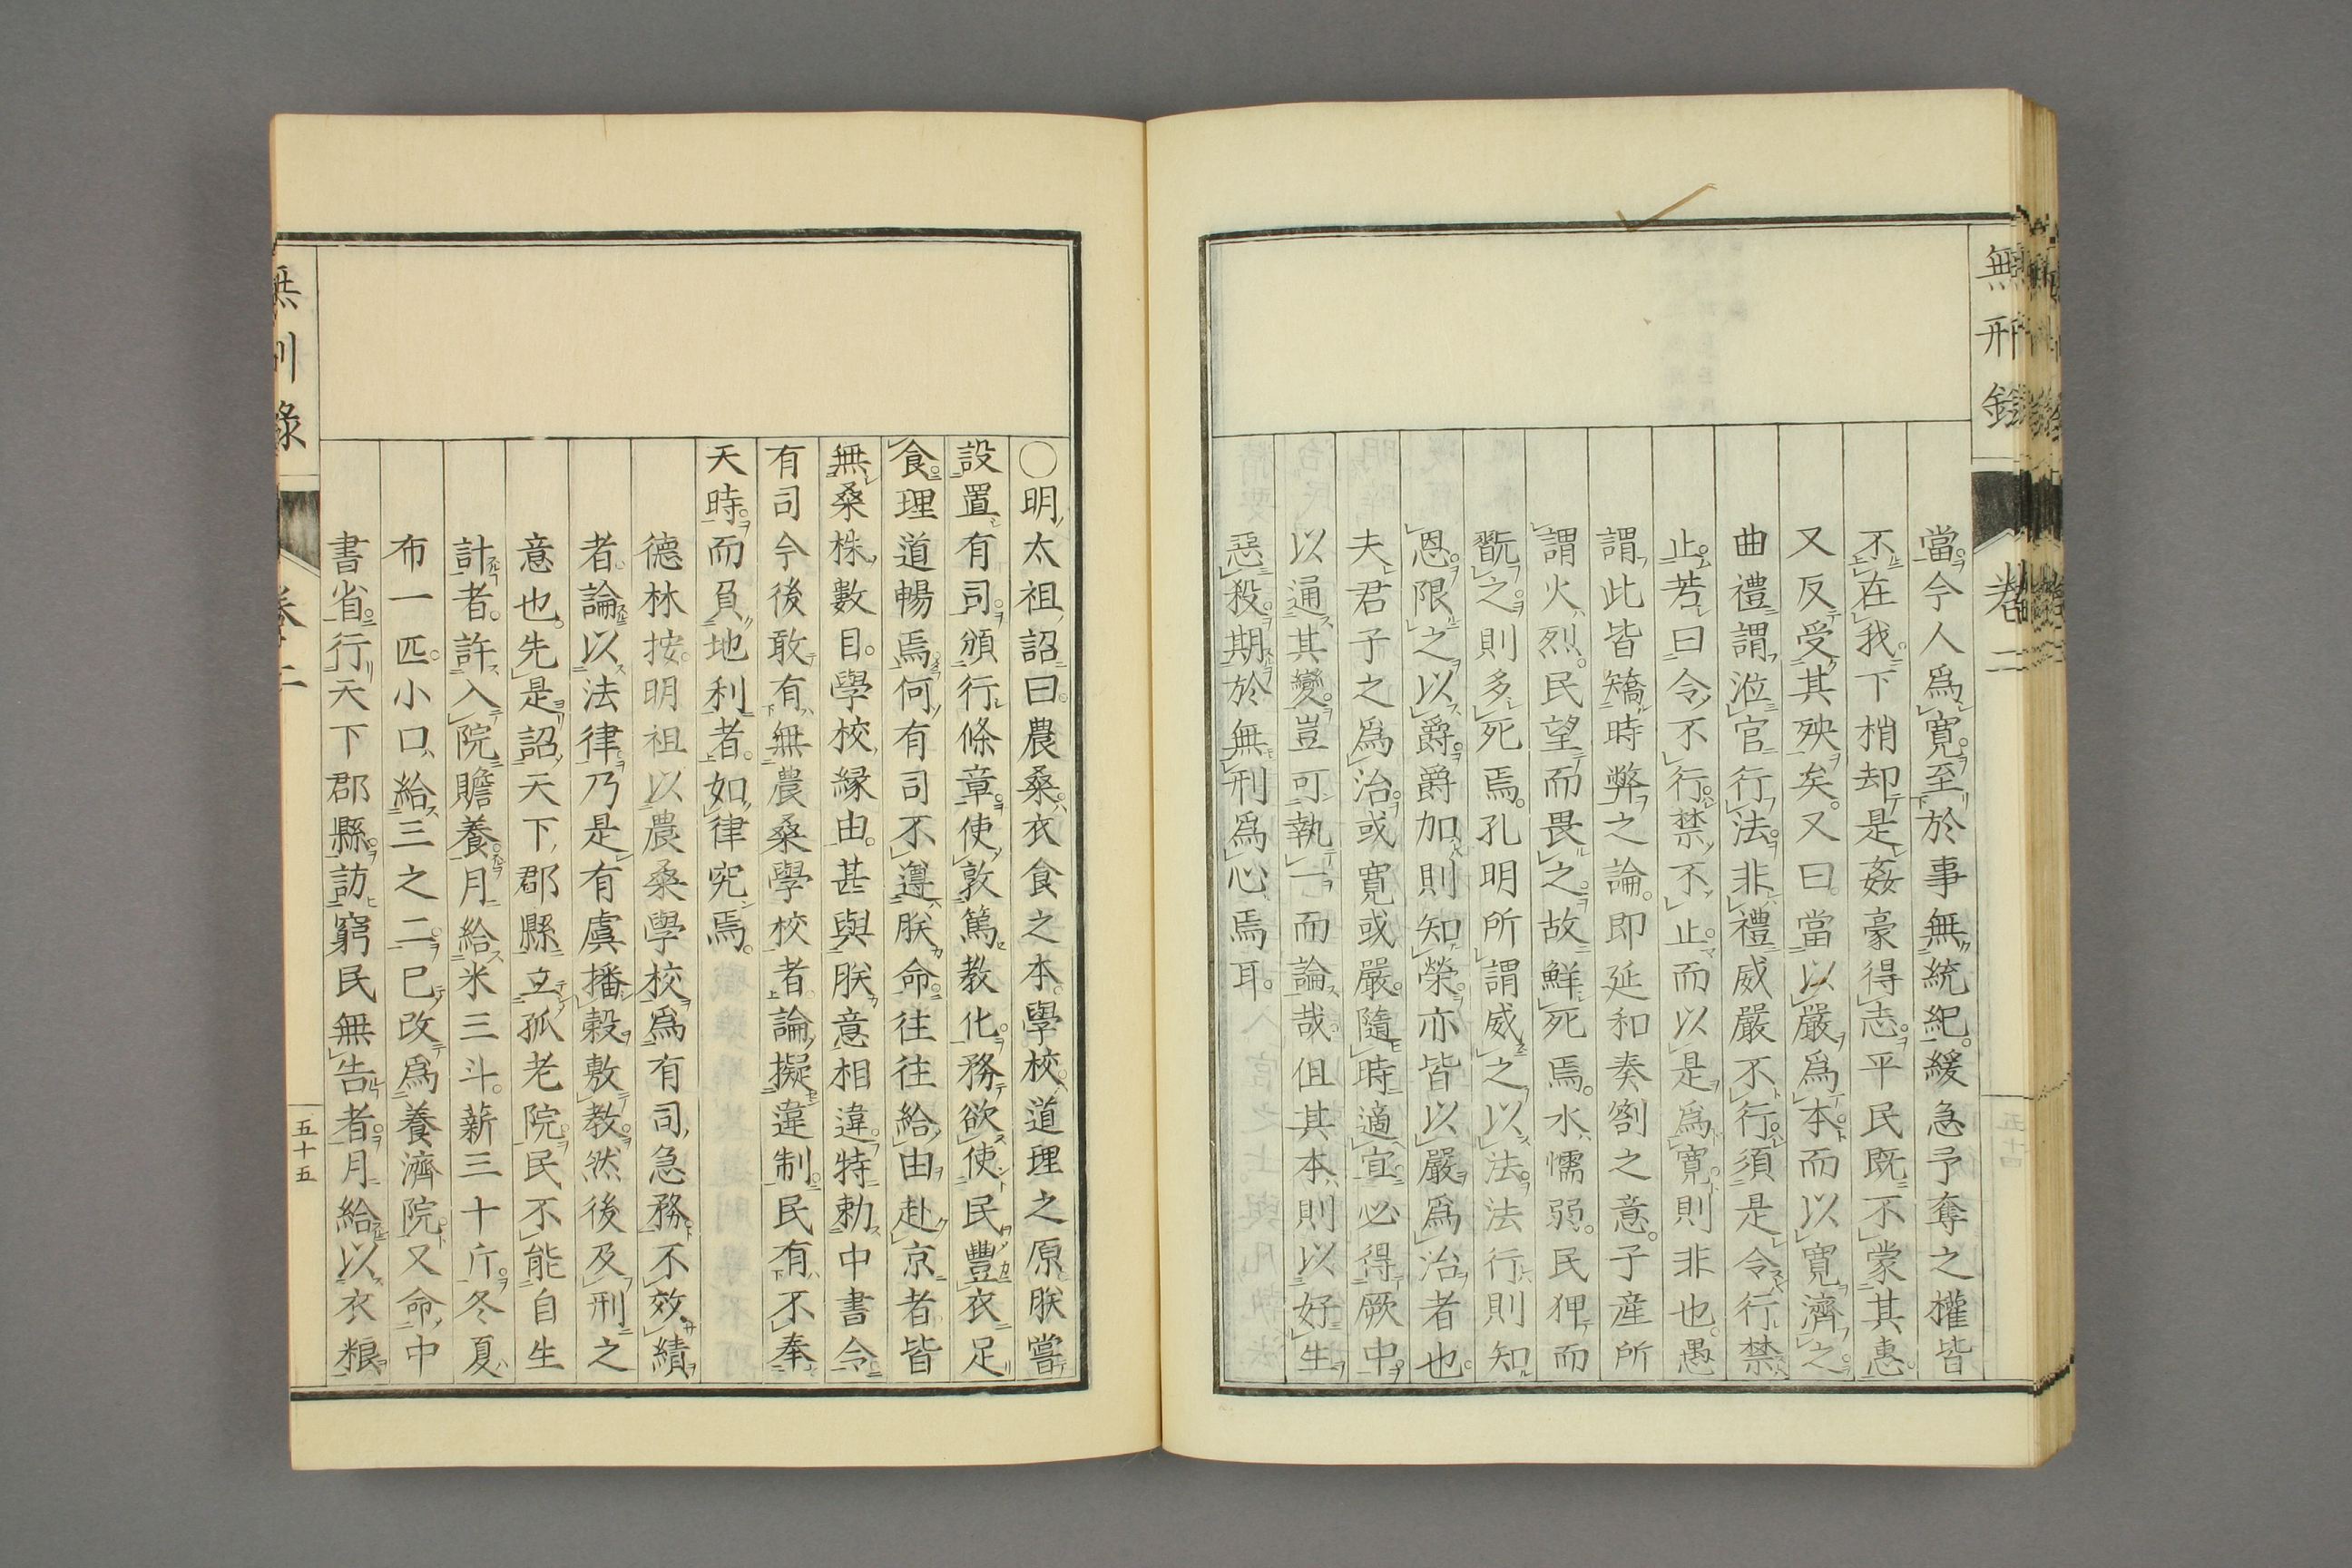 無刑錄
卷二
當今人爲寬至於事無統紀緩急予奪之權皆
不在我下梢却是姦豪得志平民既不蒙其惠
又反受其殃矣又曰當以嚴爲本而以寬濟之
曲禮謂涖官行法非禮威嚴不行須是令行禁
止若曰令不行禁不止而以是爲寬則非也愚
謂此皆矯時弊之論即延和奏劄之意子產所
謂火烈民望而畏之故鮮死焉水懦弱民狎而
翫之則多死焉孔明所謂威之以法法行則知
恩限之以爵爵加則知榮亦皆以嚴爲治者也
夫君子之爲治或寬或嚴隨時適宜必得厥中
以通其變豈可執一而論哉但其本則以好生
惡殺期於無刑爲心焉耳
五十四
○明太祖詔曰農桑衣食之本學校道理之原朕嘗
設置有司頒行條章使敦篤教化務欲使民豐衣足
食理道暢焉何有司不遵朕命往往給由赴京者皆
無桑株數目學校緣由甚與朕意相違特勅中書令
有司今後敢有無農桑學校者論擬違制民有不奉
天時而負地利者如律究焉
德林按明祖以農桑學校爲有司急務不效績
者論以法律乃是有虞播穀敷教然後及刑之
意也先是詔天下郡縣立孤老院民不能自生
計者許入院贍養月給米三斗薪三十斤冬夏
布一匹小口給三之二已改爲養濟院又命中
書省行天下郡縣訪窮民無告者月給以衣粮
無刑錄
卷二
五十五